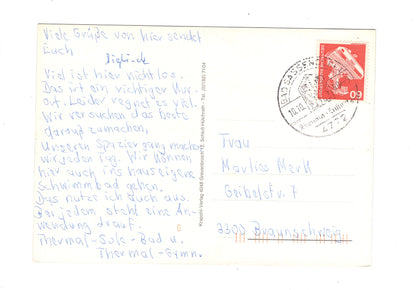 Viele Grüße von hier sendet
Euch
Viel ist hier nicht los.
Das ist ein richtiger Kur-
ort. Leider regnet es viel.
Wir versuchen das Beste
daraus zumachen.
Unseren Spaziergang machen
wir jeden Tag. Wir können
hier auch ins hauseigene
Schwimmbad gehen.
Das nutze ich auch aus.
Bei jedem steht eine An-
wendung drauf.
Thermal-Sole-Bad u.
Thermal-Gymn.
BAD SASSEN
4772
60
Frau
Marlies Merk
Geibelstr. 7
3300 Braunschweig